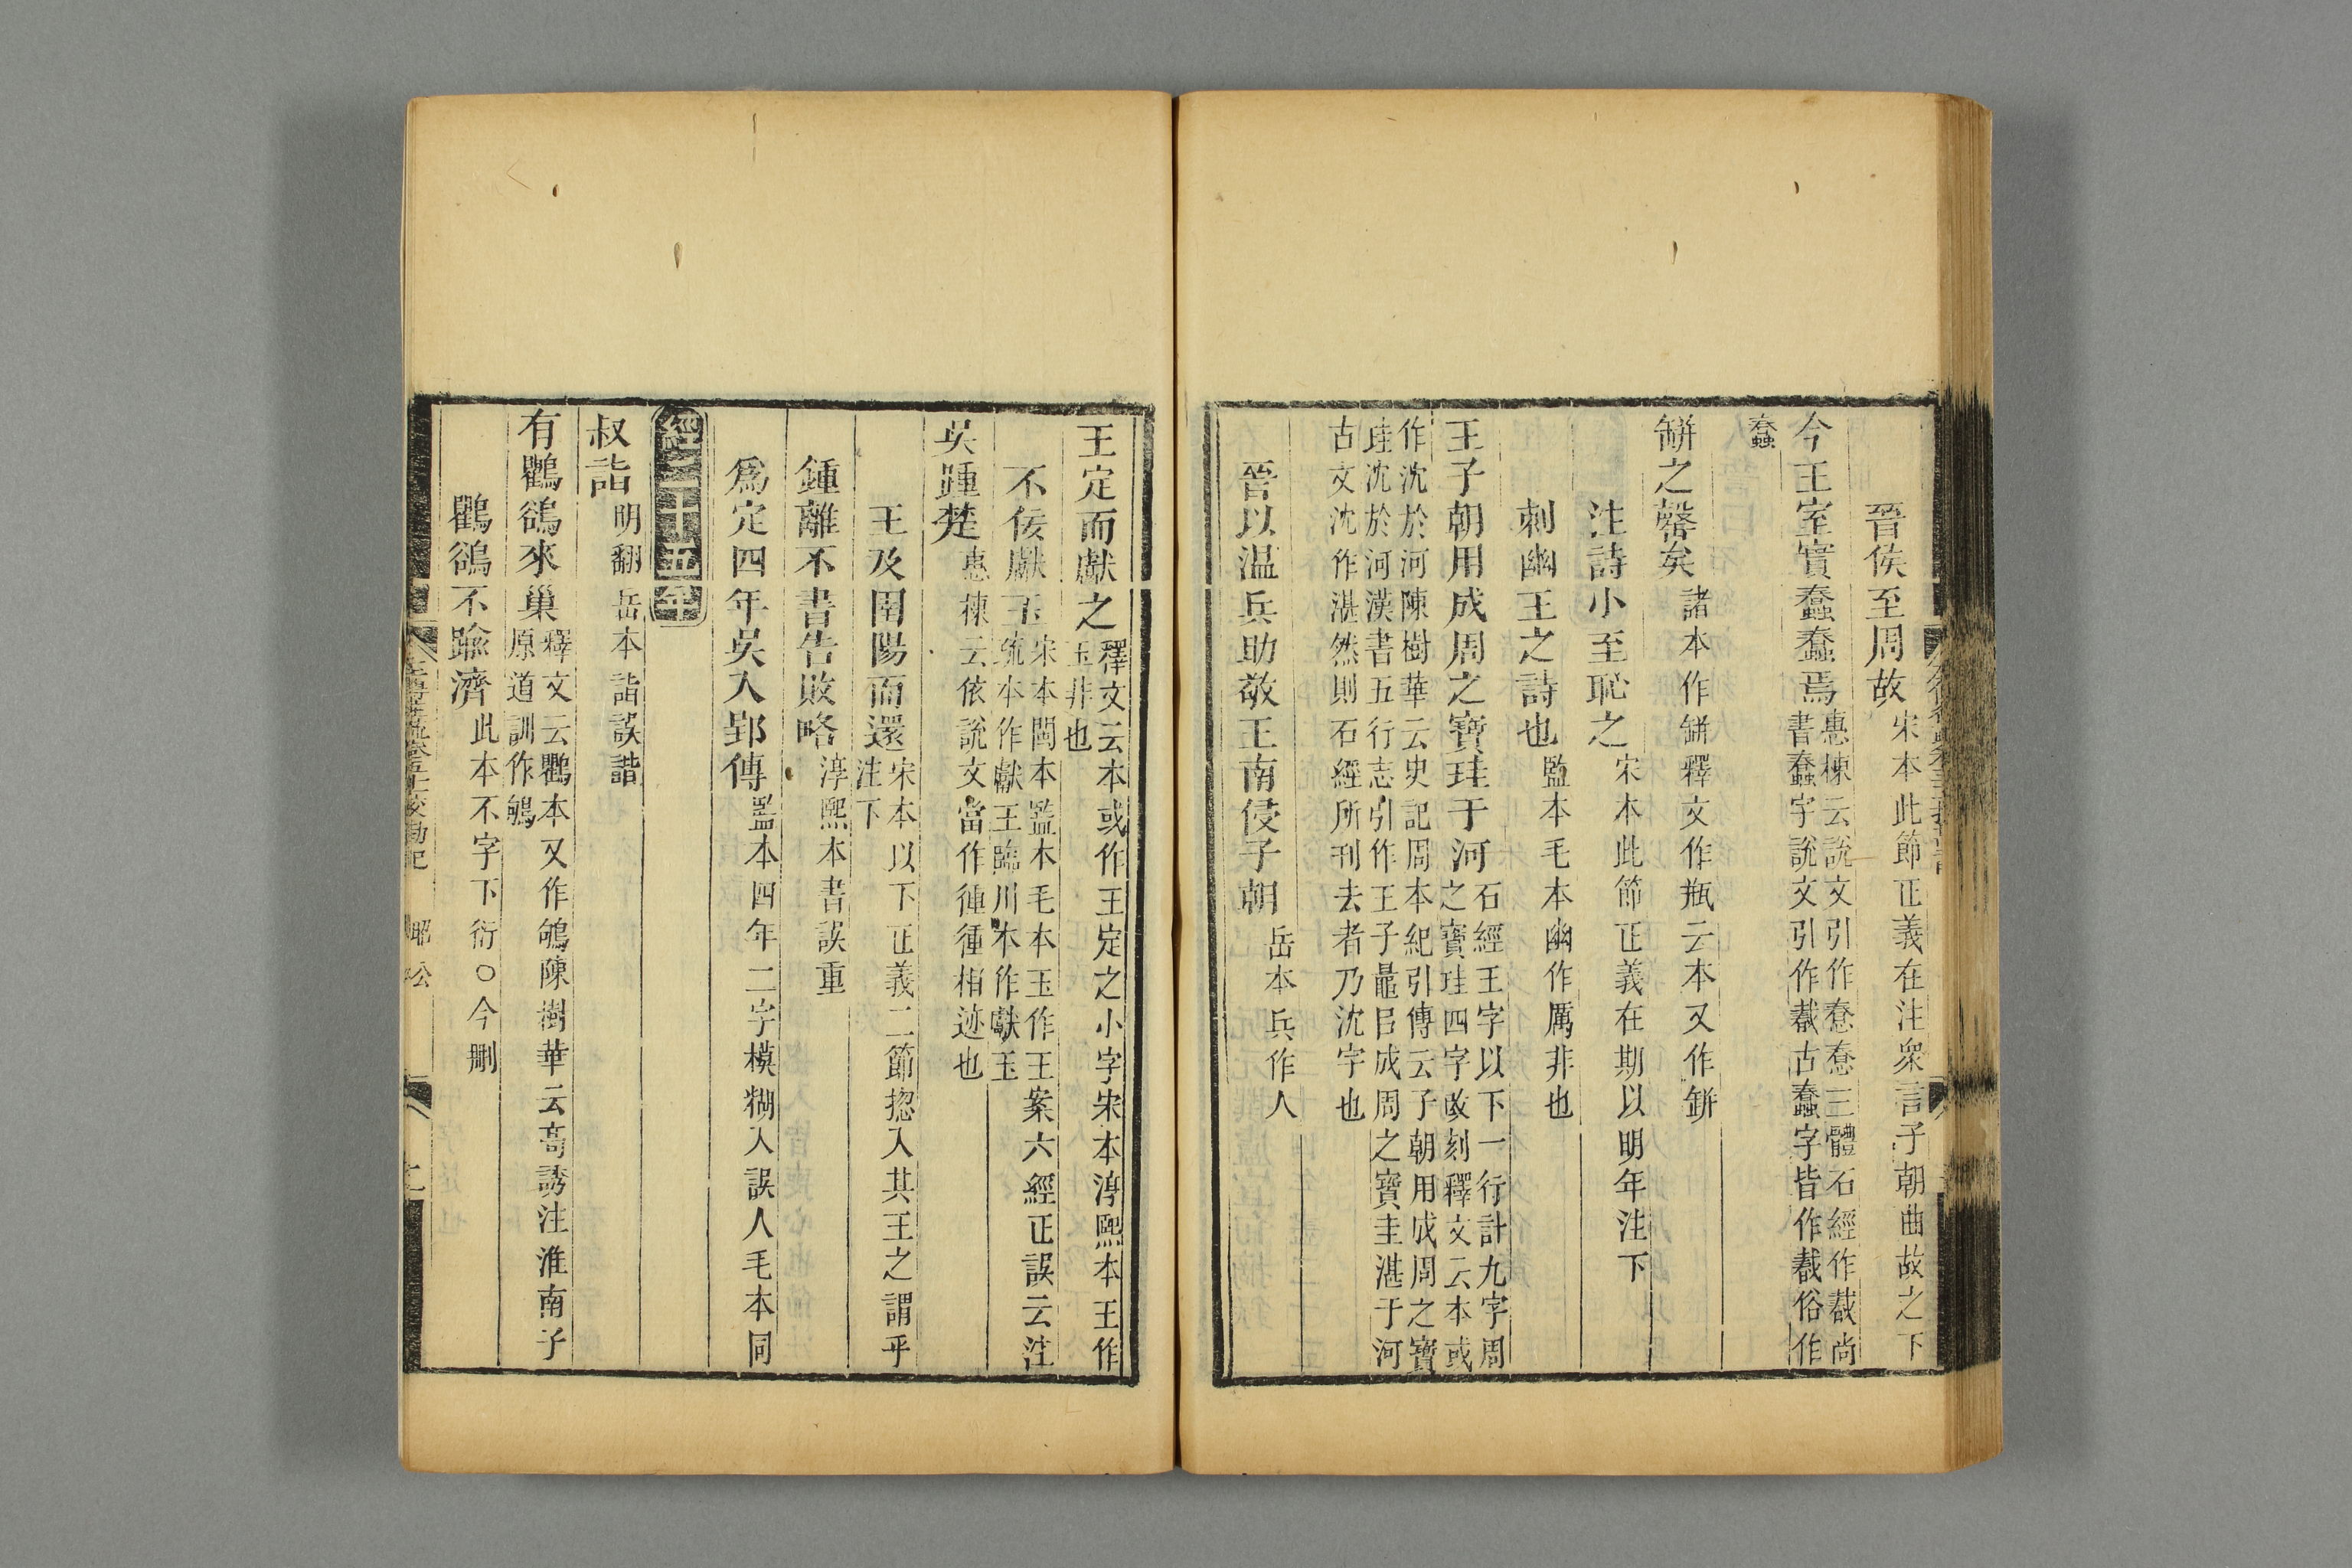 晉侯至周故宋本此節正義在注衆言子朝曲故之下
今王室實蠢蠢焉惠棟云說文引作惷惷三體石經作𢧵尚
書蠢字說文引作𢧵古蠢字皆作𢧵俗作
蠢
缾之罄矣諸本作缾釋文作瓶云本又作缾
注詩小至恥之宋本此節正義在期以明年注下
刺幽王之詩也監本毛本幽作厲非也
王子朝用成周之寶珪于河石經王字以下一行計九字周
之寶珪四字改刻釋文云本或
作沈於河陳樹華云史記周本紀引傳云子朝用成周之寶
珪沈於河漢書五行志引作王子鼂㠯成周之寶圭湛于河
古文沈作湛然則石經所刊去者乃沈字也
晉以温兵助敬王南侵子朝岳本兵作人
王定而獻之釋文云本或作王定之小字宋本淳熙本王作
玉非也
不佞獻玉宋本閩本監本毛本玉作王案六經正誤云注
疏本作獻王臨川本作獻玉
吳踵楚惠棟云依說文當作𢔰𢔰相迹也
王及圉陽而還宋本以下正義二節揔入其王之謂乎
注下
鍾離不書告敗略淳熙本書誤重
爲定四年吳入郢傳監本四年二字模糊入誤人毛本同
經二十五年
叔詣明翻岳本詣誤諧
有鸜鵒來巢釋文云鸜本又作鴝陳樹華云高誘注淮南子
原道訓作鴝
鸜鵒不踰濟此本不字下衍○今刪
昭公